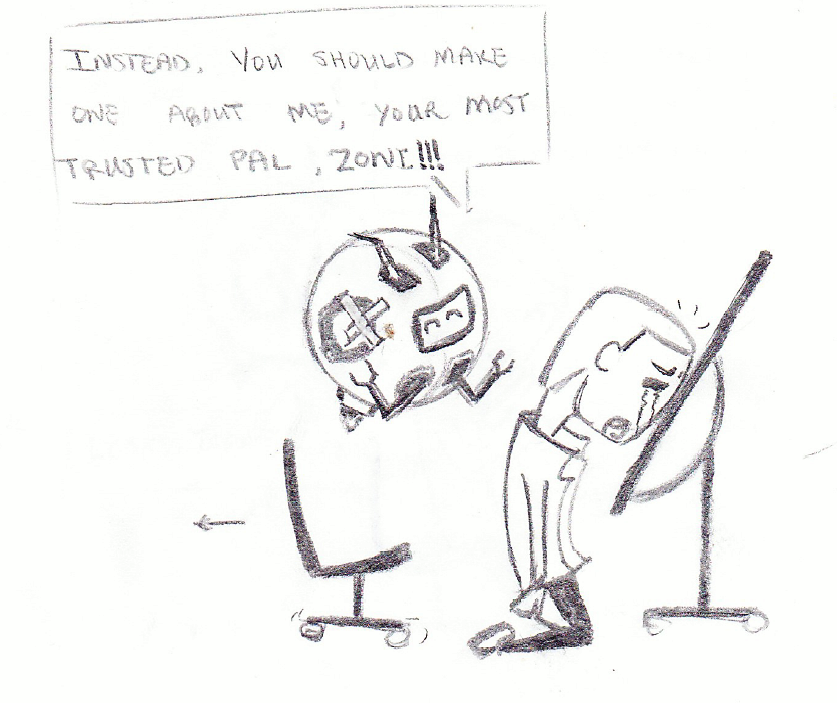 INSTEAD, YOU SHOULD MAKE
ONE ABOUT ME, YOUR MOST
TRUSTED PAL, ZONI!!!